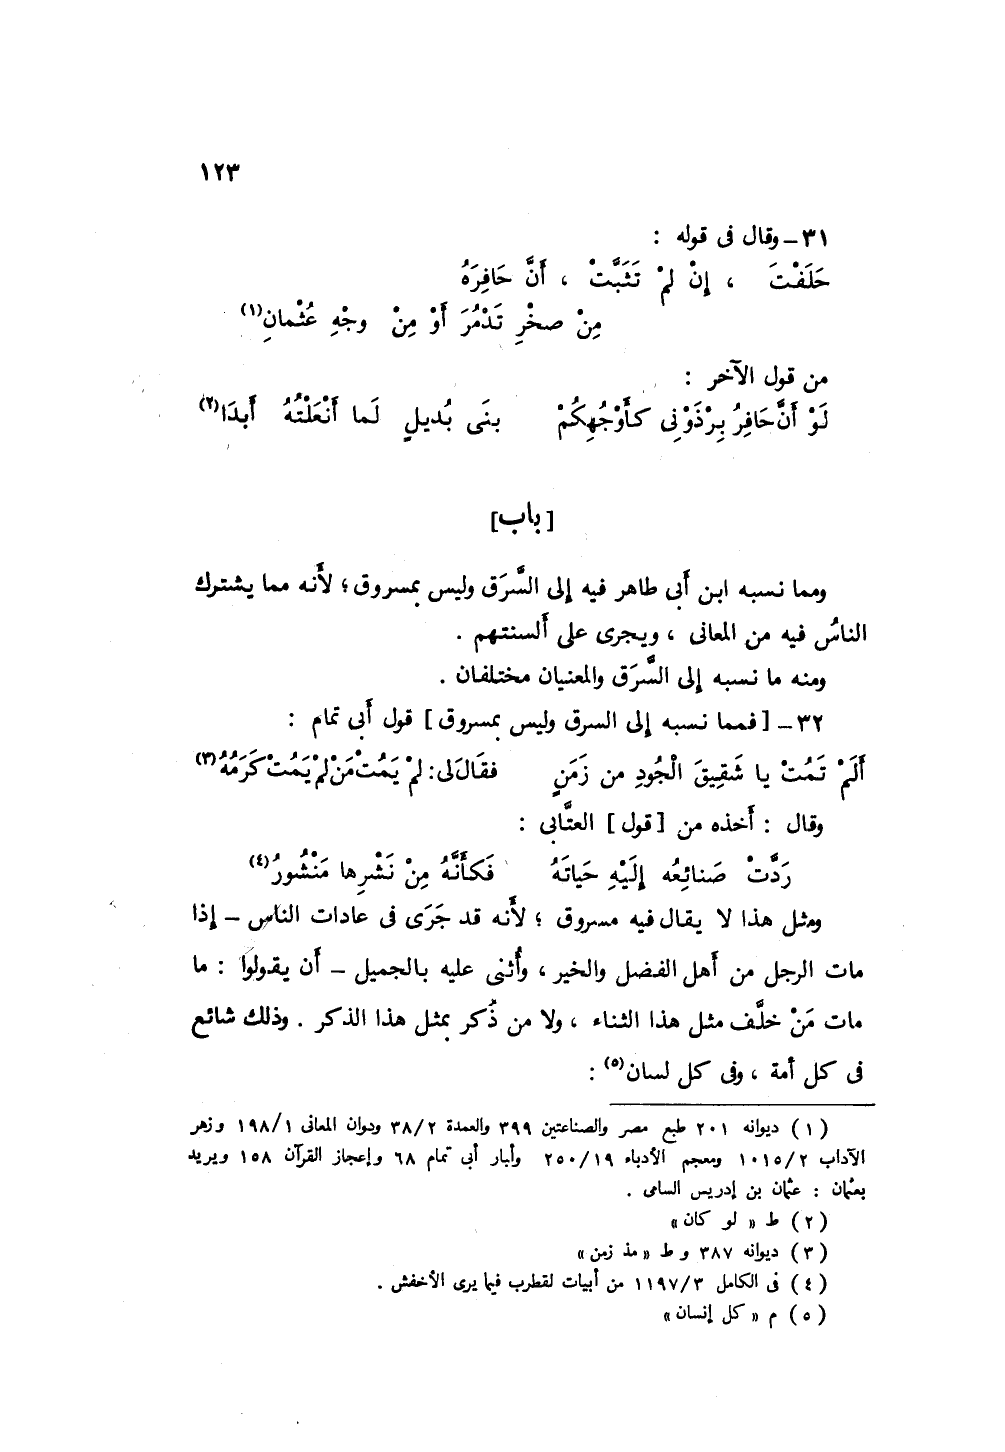 ١٢٣
٣١ – وقال فى قوله :
حَلَفْتَ ، إِنْ لمْ تَثَبَّتْ ، أَنَّ حَافِرَهُ
مِنْ صخْرِ تَدْمُرَ أَوْ مِنْ وجْهِ عُثْمانِ(١)
من قول الآخر :
لَوْ أَنَّ حَافِرُ بِرْذَوْنِى كأَوْجُهِكُمْ بنَى بُديلٍ لَما أَنْعَلْتُهُ أَبدَا(٢)
[ باب ]
ومما نسبه ابن أَبى طاهر فيه إلى السَّرَق وليس بمسروق ؛ لأَنه مما يشترك
الناسُ فيه من المعانى ، ويجرى على أَلسنتهم .
ومنه ما نسبه إلى السَّرَق والمعنيان مختلفان .
٣٢ – [ فمما نسبه إلى السرق وليس بمسروق ] قول أَبى تمام :
أَلَمْ تَمُتْ يا شَقِيقَ الْجُودِ من زَمَنٍ فقَالَ لى : لمْ يَمُتْ مَنْ لمْ يَمُتْ كَرَمُهُ(٣)
وقال : أَخذه من [ قول ] العتَّابى :
رَدَّتْ صَنائِعُه إلَيْهِ حَياتَهُ فَكأَنَّهُ مِنْ نَشْرِها مَنْشُورُ(٤)
ومثل هذا لا يقال فيه مسروق ؛ لأَنه قد جَرَى فى عادات الناس – إذا
مات الرجل من أَهل الفضل والخير ، وأُثنى عليه بالجميل – أَن يقولوا : ما
مات مَنْ خلَّف مثل هذا الثناء ، ولا من ذُكر بمثل هذا الذكر . وذلك شائع
فى كل أمة ، وفى كل لسان(٥) :
( ١ ) ديوانه ٢٠١ طبع مصر والصناعتين ٣٩٩ والعمدة ٣٨/٢ وديوان المعانى ١٩٨/١ وزهر
الآداب ١٠١٥/٢ ومعجم الأدباء ٢٥٠/١٩ وأبار أبى تمام ٦٨ وإعجاز القرآن ١٥٨ ويريد
بعثمان : عثمان بن إدريس السامى .
( ٢ ) ط « لو كان »
( ٣ ) ديوانه ٣٨٧ و ط « مذ زمن »
( ٤ ) فى الكامل ١١٩٧/٣ من أبيات لقطرب فيما يرى الأخفش .
( ٥ ) م « كل إنسان »